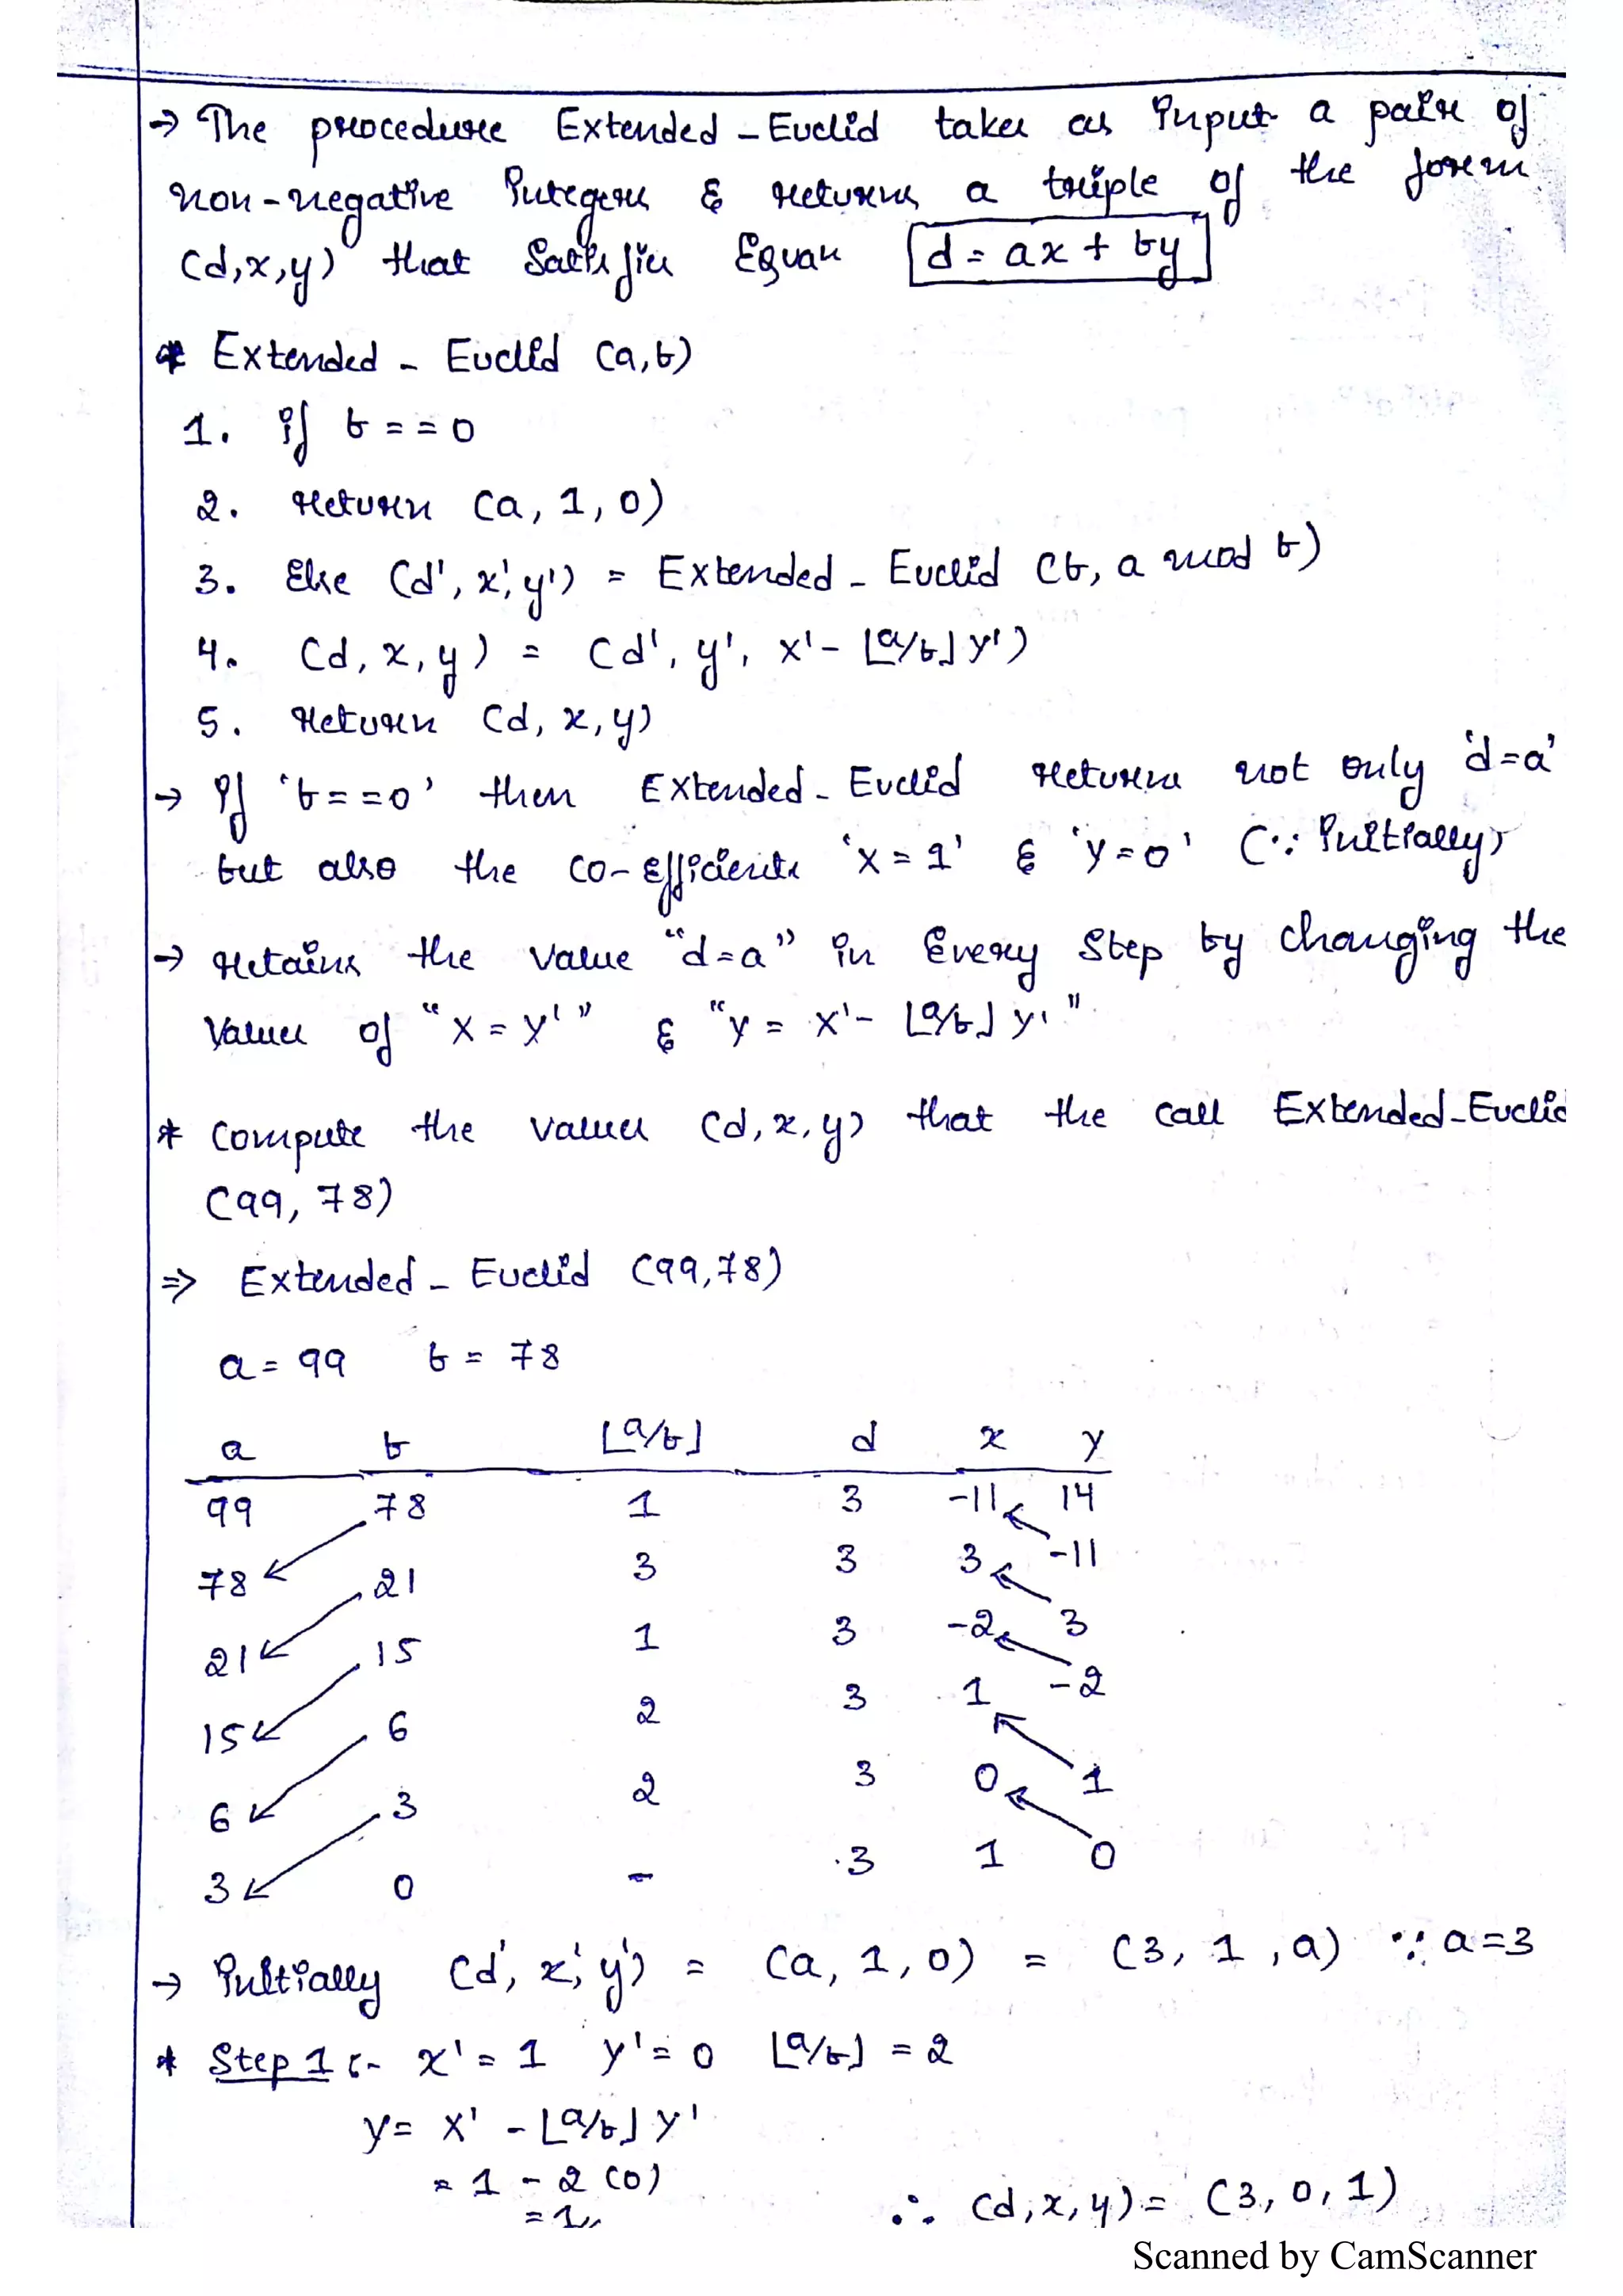 → The procedure Extended - Euclid takes as input a pair of
non-negative integers & returns a triple of the form
(d,x,y) that satisfies Equan d = ax + by
* Extended - Euclid (a,b)
1. if b == 0
2. return (a, 1, 0)
3. Else (d', x', y') = Extended - Euclid (b, a mod b)
4. (d, x, y) = (d', y', x' - ⌊a/b⌋ y')
5. return (d, x, y)
→ If 'b==0' then Extended - Euclid returns not only 'd=a'
but also the co-efficients 'x=1' & 'y=0' (∵ Initially)
→ retains the value "d=a" in Every Step by changing the
values of "x = y'" & "y = x' - ⌊a/b⌋ y'"
* compute the values (d, x, y) that the call Extended-Euclid
(99, 78)
⇒ Extended - Euclid (99,78)
a = 99 b = 78
a b ⌊a/b⌋ d x y
99 78 1 3 -11 14
78 21 3 3 3 -11
21 15 1 3 -2 3
15 6 2 3 1 -2
6 3 2 3 0 1
3 0 - 3 1 0
→ Initially (d', x', y') = (a, 1, 0) = (3, 1, a) ∵ a=3
* Step 1 :- x' = 1 y' = 0 ⌊a/b⌋ = 2
y = x' - ⌊a/b⌋ y'
= 1 - 2 (0)
= 1,,
∴ (d, x, y) = (3, 0, 1)
Scanned by CamScanner